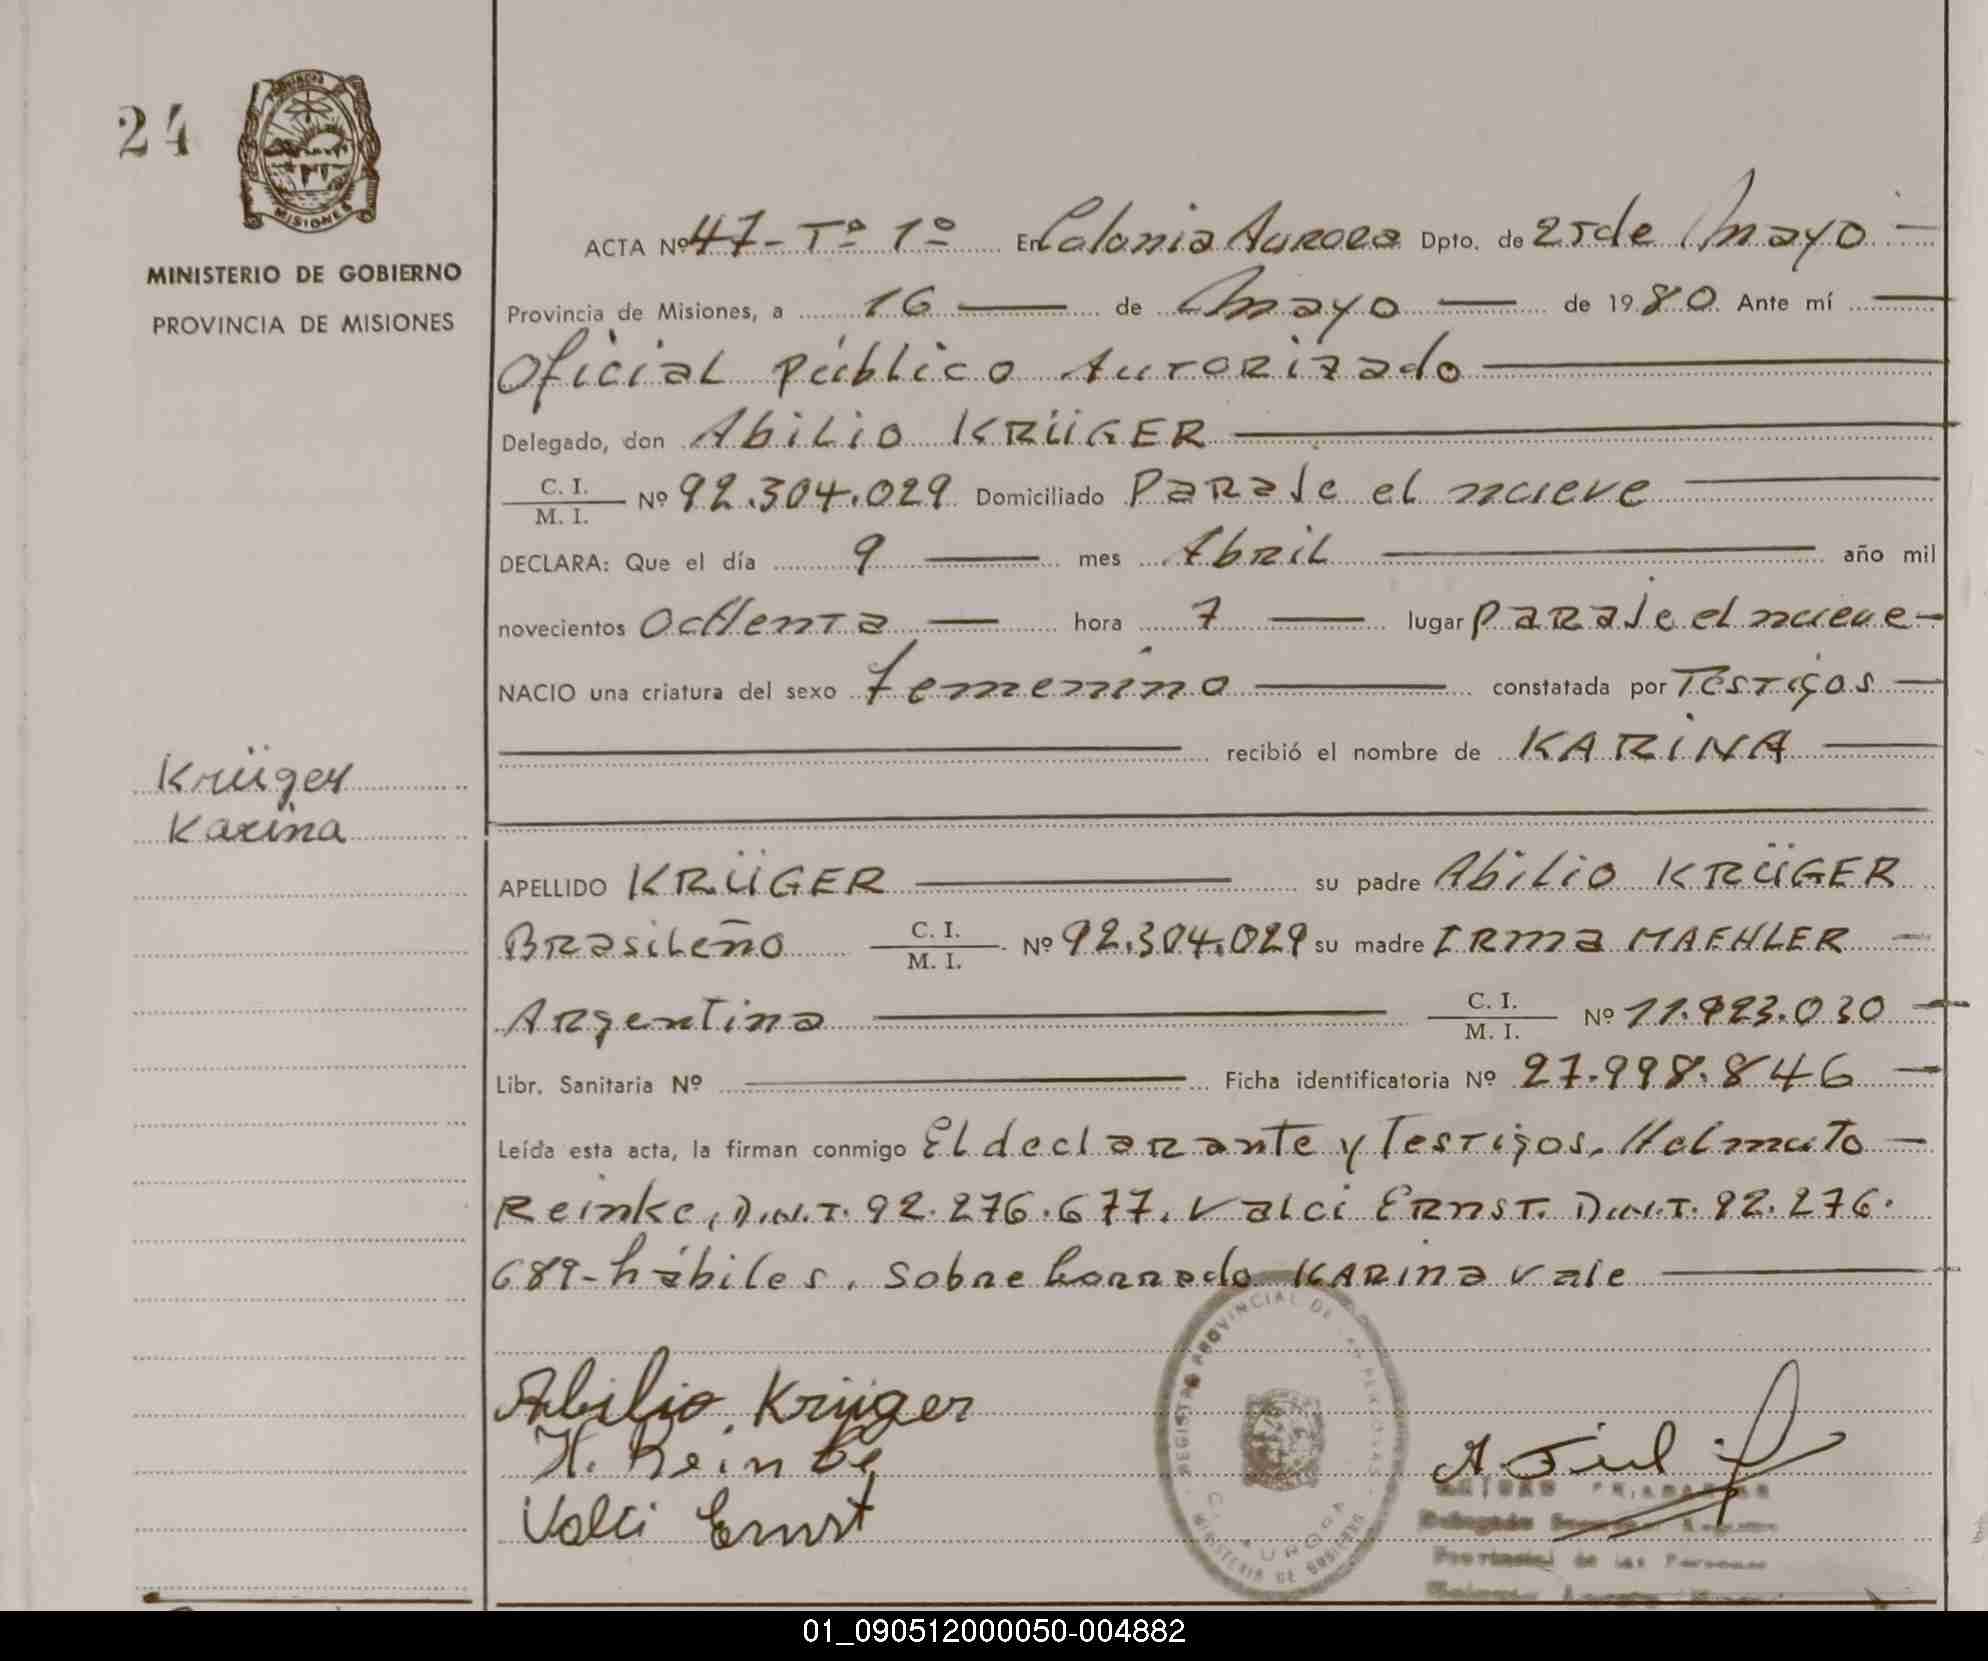 24
MISIONES
MINISTERIO DE GOBIERNO
PROVINCIA DE MISIONES
ACTA Nº 47-Tº 1º En Colonia Aurora Dpto. de 25 de Mayo
Provincia de Misiones, a 16 de Mayo de 1980. Ante mí
Oficial Público Autorizado
Delegado, don Abilio KRÜGER
C. I. / M. I. Nº 92.304.029 Domiciliado Paraje el nueve
DECLARA: Que el día 9 mes Abril año mil
novecientos Ochenta hora 7 lugar Paraje el nueve
NACIO una criatura del sexo femenino constatada por Testigos
recibió el nombre de KARINA
Krüger
Karina
APELLIDO KRÜGER su padre Abilio KRÜGER
Brasileño C. I. / M. I. Nº 92.304.029 su madre Irma MAEHLER
Argentina C. I. / M. I. Nº 11.923.030
Libr. Sanitaria Nº Ficha identificatoria Nº 27.998.846
Leída esta acta, la firman conmigo El declarante y Testigos, Helmuto
Reinke, D.N.I. 92.276.677. Valci ERNST. D.N.I. 92.276.
689-hábiles. Sobre borrado KARINA vale
Abilio Krüger
H. Reinke
Valci Ernst
REGISTRO PROVINCIAL DE LAS PERSONAS
C. AURORA
MINISTERIO DE GOBIERNO
Provincial de las Personas
01_090512000050-004882